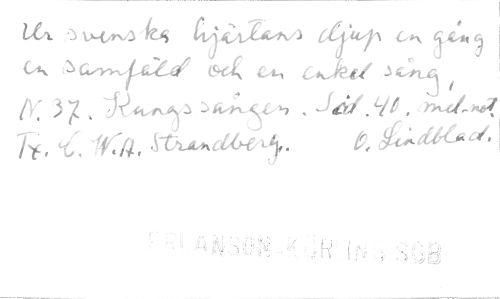 Ur svenska hjärtans djup en gång
en samfäld och en enkel sång,
N. 37. Kungssången. Sid. 40. mel. not.
Tx. C. W. A. Strandberg. O. Lindblad.
ERLANSON-KÖRLING SGB